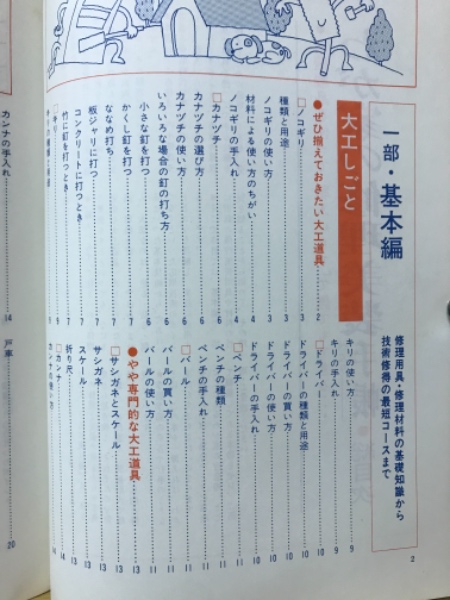 一部・基本編
修理用具・修理材料の基礎知識から
技術修得の最短コースまで
大工しごと
●ぜひ揃えておきたい大工道具……2
□ノコギリ……3
種類と用途……3
ノコギリの使い方……3
材料による使い方のちがい……4
ノコギリの手入れ……4
□カナヅチ……4
カナヅチの選び方……6
カナヅチの使い方……6
いろいろな場合の釘の打ち方……6
小さな釘を打つ……6
かくし釘を打つ……7
ななめ打ち……7
板ジャリに打つ……7
コンクリートに打つとき……7
竹に釘を打つとき……7
□キリ……9
キリの使い方……9
キリの手入れ……9
□ドライバー……10
ドライバーの種類と用途……10
ドライバーの買い方……10
ドライバーの使い方……10
ドライバーの手入れ……10
□ペンチ……11
ペンチの種類……11
ペンチの手入れ……11
□バール……11
バールの買い方……11
バールの使い方……11
●やや専門的な大工道具……13
□サシガネとスケール……13
サシガネ……13
スケール……13
折り尺……13
□カンナ……14
カンナの使い方……14
2
カンナの手入れ……14
戸車……20